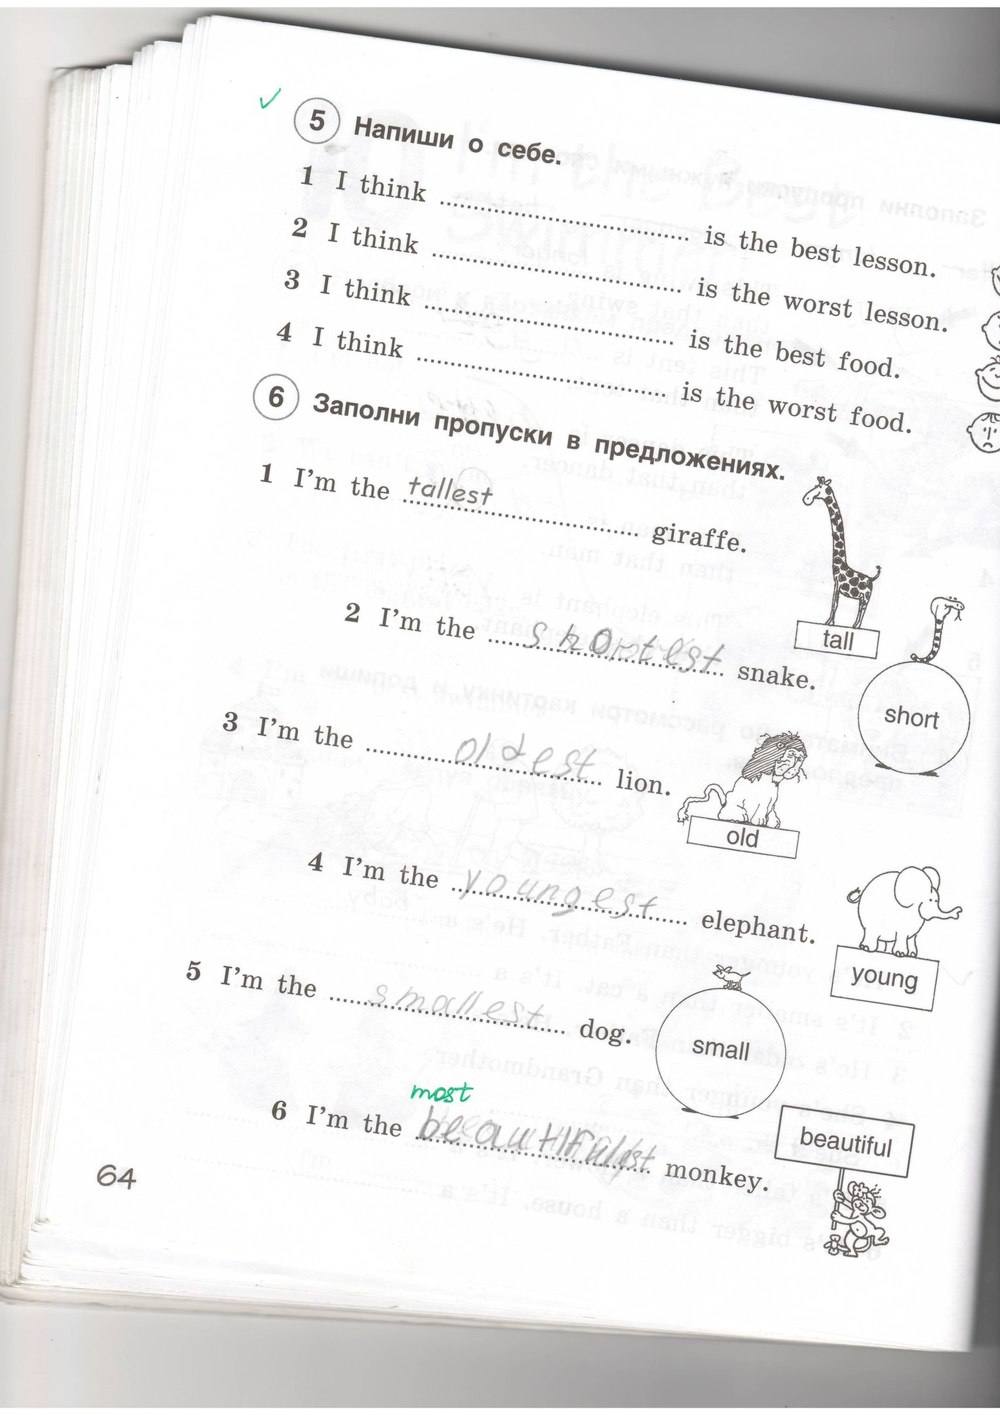 5 Напиши о себе.
1 I think .......... is the best lesson.
2 I think .......... is the worst lesson.
3 I think .......... is the best food.
4 I think .......... is the worst food.
6 Заполни пропуски в предложениях.
1 I'm the tallest giraffe.
tall
2 I'm the shortest snake.
short
3 I'm the oldest lion.
old
4 I'm the youngest elephant.
young
5 I'm the smallest dog.
small
most
6 I'm the beautifulest monkey.
beautiful
64